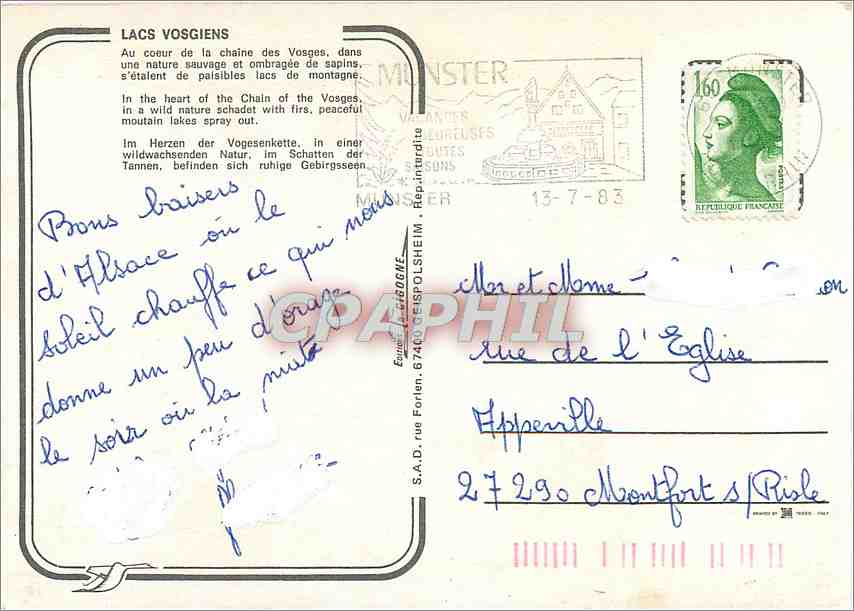 LACS VOSGIENS
Au coeur de la chaîne des Vosges, dans
une nature sauvage et ombragée de sapins,
s'étalent de paisibles lacs de montagne.
In the heart of the Chain of the Vosges,
in a wild nature schadet with firs, peaceful
moutain lakes spray out.
Im Herzen der Vogesenkette, in einer
wildwachsenden Natur, im Schatten der
Tannen, befinden sich ruhige Gebirgsseen.
Bons baisers
d'Alsace où le
soleil chauffe ce qui nous
donne un peu d'orage
le soir ou la nuit
S.A.D. rue Forlen. 67400 GEISPOLSHEIM . Rep. interdite
Editions La CIGOGNE
MUNSTER
VACANCES
HEUREUSES
TOUTES
SAISONS
MUNSTER 13-7-83
MUNSTER
RHIN
1,60
POSTES
REPUBLIQUE FRANÇAISE
Mr et Mme on
rue de l'Eglise
Appeville
27290 Montfort s/Risle
PRINTED BY ITALY
CPAPHIL